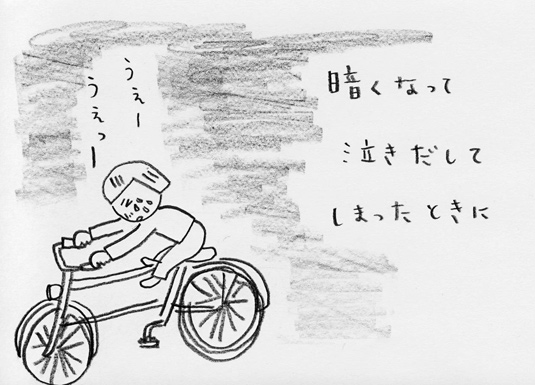 暗くなって
泣きだして
しまったときに
うぇー
うぇっー